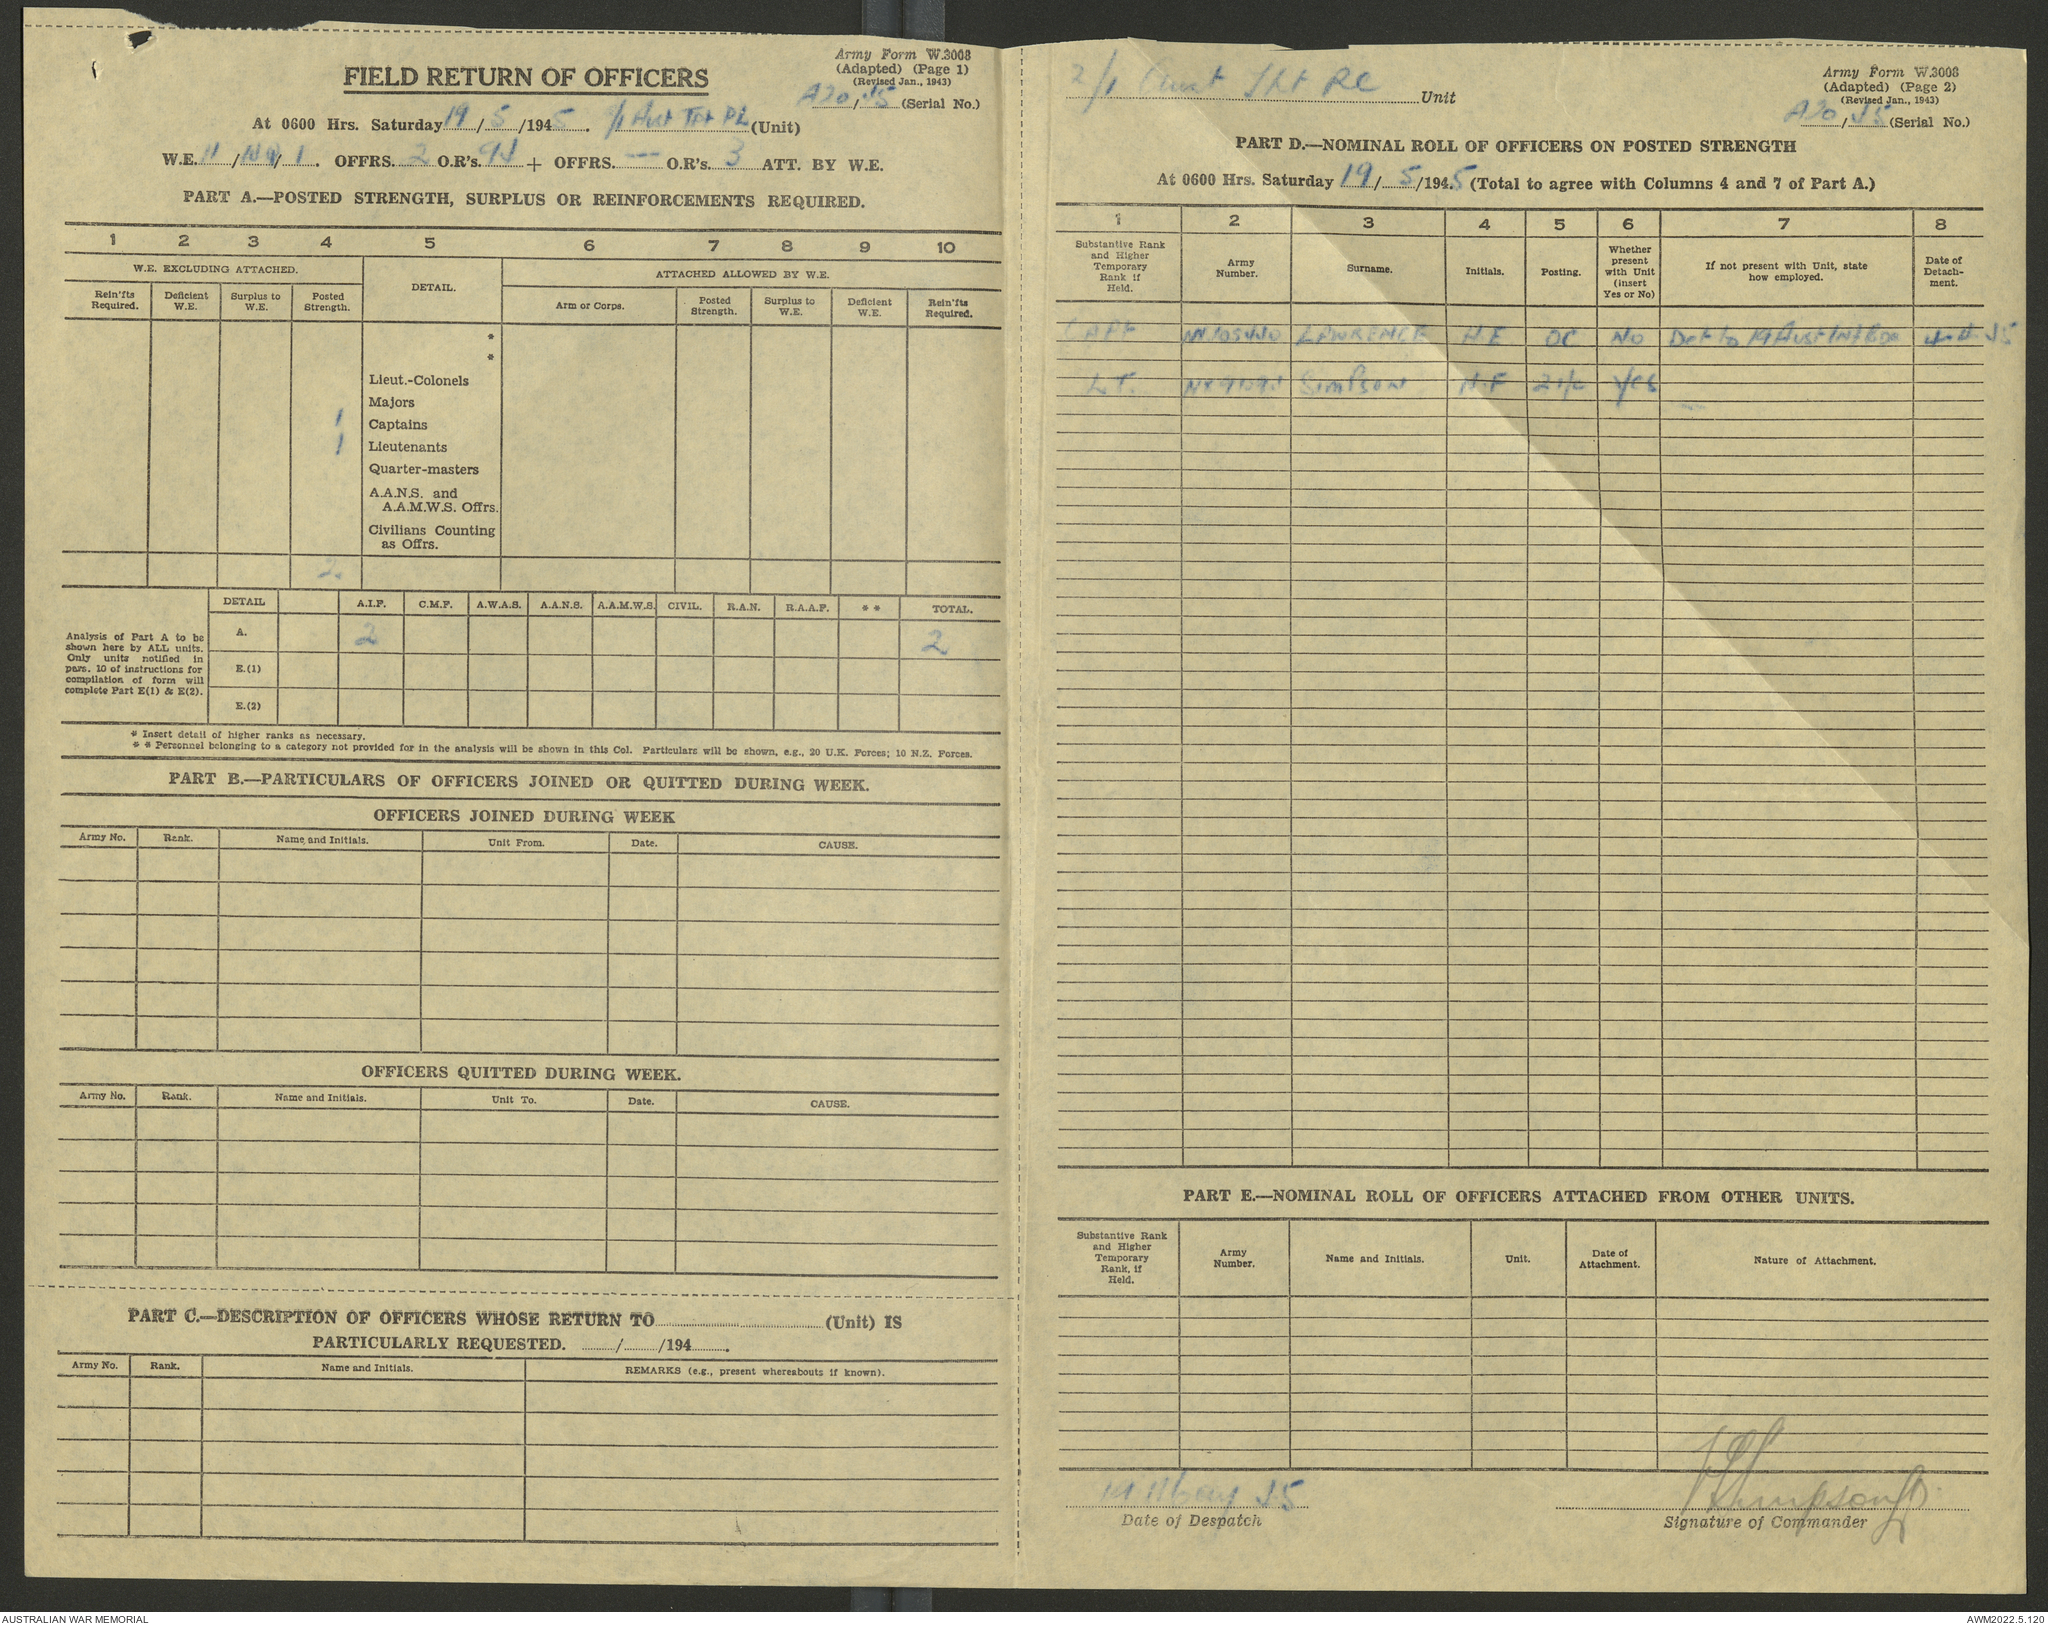 Army Form W.3008
(Adapted) (Page 1)
(Revised Jan., 1943)
FIELD RETURN OF OFFICERS
A20/45 (Serial No.)
At 0600 Hrs. Saturday 19/5/1945. 2/1 Aust Tpt Pl (Unit)
W.E. 11/ /1. OFFRS. 2 O.R's. 94 + OFFRS. — O.R's. 3 ATT. BY W.E.
PART A.—POSTED STRENGTH, SURPLUS OR REINFORCEMENTS REQUIRED.
1 2 3 4 5 6 7 8 9 10
W.E. EXCLUDING ATTACHED. DETAIL. ATTACHED ALLOWED BY W.E.
Rein'fts Required. Deficient W.E. Surplus to W.E. Posted Strength. Arm or Corps. Posted Strength. Surplus to W.E. Deficient W.E. Rein'fts Required.
*
*
Lieut.-Colonels
Majors
1 Captains
1 Lieutenants
Quarter-masters
A.A.N.S. and
A.A.M.W.S. Offrs.
Civilians Counting
as Offrs.
2.
DETAIL A.I.F. C.M.F. A.W.A.S. A.A.N.S. A.A.M.W.S. CIVIL. R.A.N. R.A.A.F. * * TOTAL.
Analysis of Part A to be
shown here by ALL units.
Only units notified in
para. 10 of instructions for
compilation of form will
complete Part E(1) & E(2).
A. 2 2
E.(1)
E.(2)
* Insert detail of higher ranks as necessary.
* * Personnel belonging to a category not provided for in the analysis will be shown in this Col. Particulars will be shown, e.g., 20 U.K. Forces; 10 N.Z. Forces.
PART B.—PARTICULARS OF OFFICERS JOINED OR QUITTED DURING WEEK.
OFFICERS JOINED DURING WEEK
Army No. Rank. Name and Initials. Unit From. Date. CAUSE.
OFFICERS QUITTED DURING WEEK.
Army No. Rank. Name and Initials. Unit To. Date. CAUSE.
PART C.—DESCRIPTION OF OFFICERS WHOSE RETURN TO (Unit) IS
PARTICULARLY REQUESTED. / /194 .
Army No. Rank. Name and Initials. REMARKS (e.g., present whereabouts if known).
2/1 Aust Tpt Pl Unit
Army Form W.3008
(Adapted) (Page 2)
(Revised Jan., 1943)
A20/45 (Serial No.)
PART D.—NOMINAL ROLL OF OFFICERS ON POSTED STRENGTH
At 0600 Hrs. Saturday 19/5/1945 (Total to agree with Columns 4 and 7 of Part A.)
1 2 3 4 5 6 7 8
Substantive Rank and Higher Temporary Rank if Held. Army Number. Surname. Initials. Posting. Whether present with Unit (insert Yes or No) If not present with Unit, state how employed. Date of Detach-ment.
CAPT LAWRENCE H.E OC NO Det to 19 Aust Inf Bde 4.4.45
LT. SIMPSON H.F 2i/c Yes
PART E.—NOMINAL ROLL OF OFFICERS ATTACHED FROM OTHER UNITS.
Substantive Rank and Higher Temporary Rank, if Held. Army Number. Name and Initials. Unit. Date of Attachment. Nature of Attachment.
May 45
Date of Despatch
Simpson Lt.
Signature of Commander
AUSTRALIAN WAR MEMORIAL
AWM2022.5.120